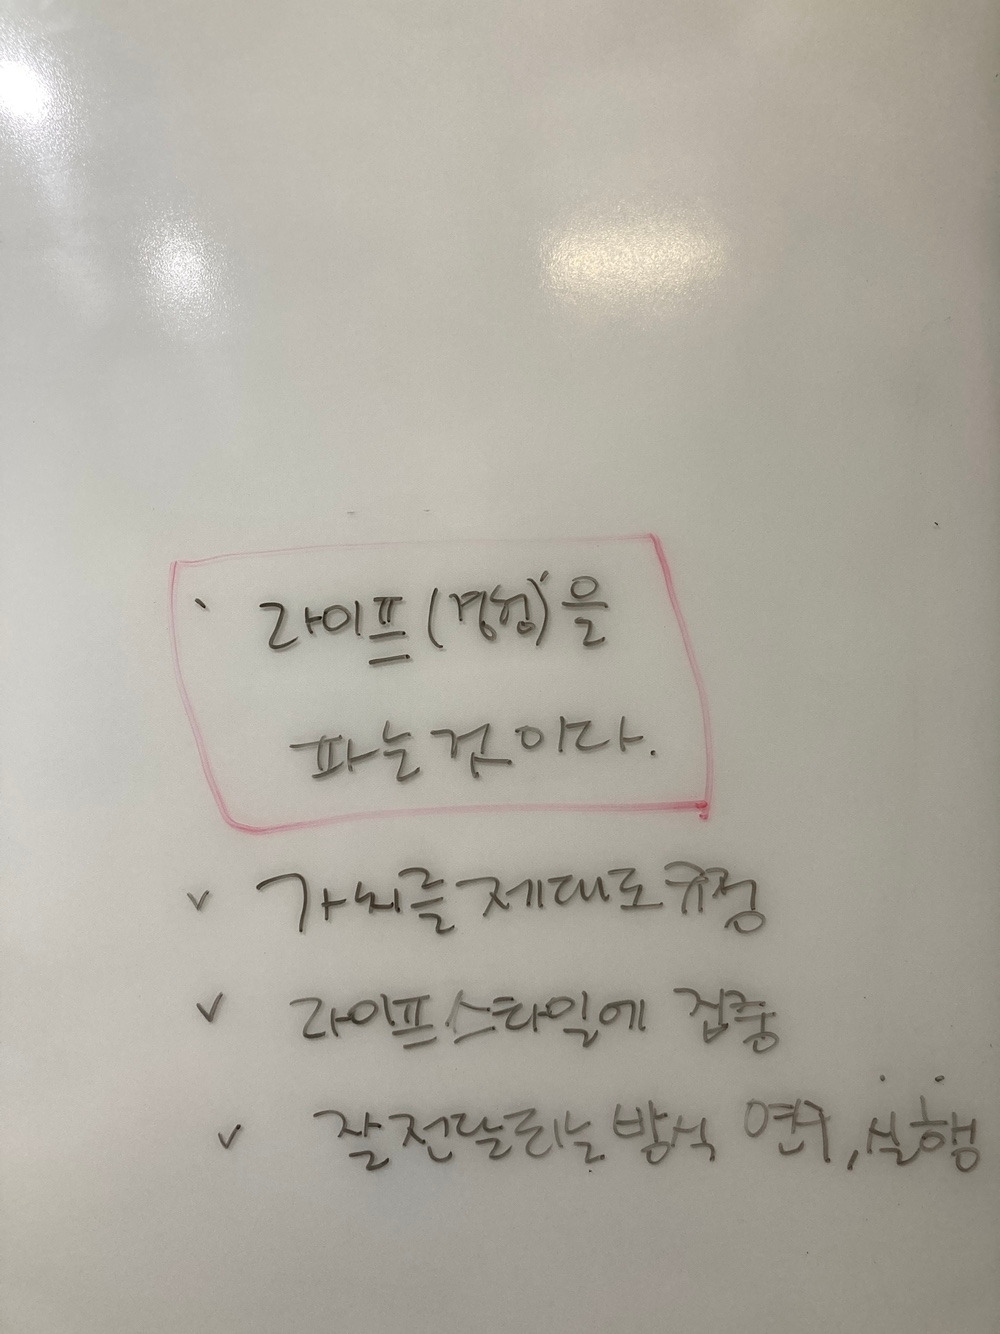 ` 라이프 (경험)'을
파는 것이다.
v 가치를 제대로 규정
v 라이프스타일에 집중
v 잘 전달되는 방식 연구, 실행